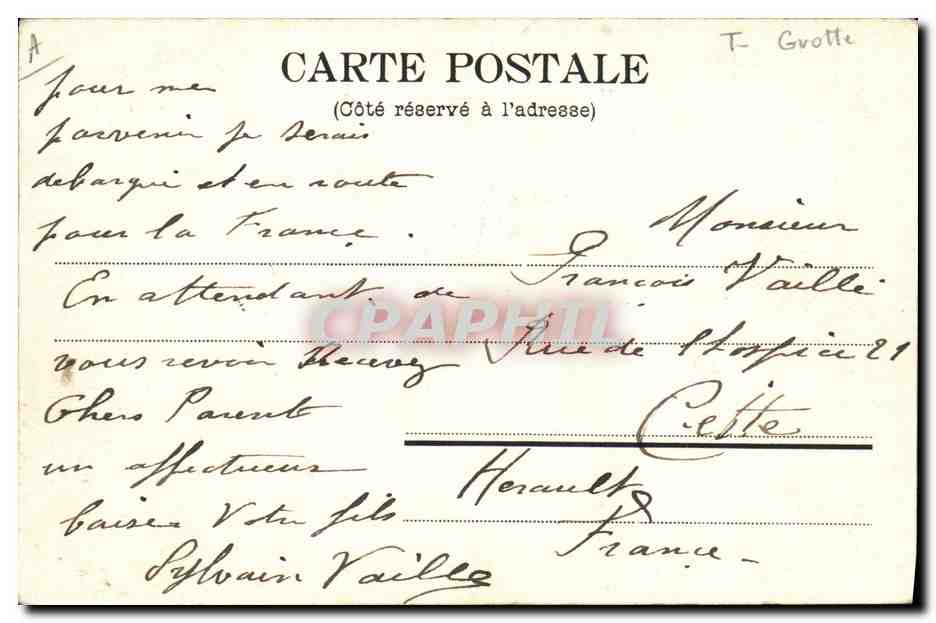 A
T- Grotte
CARTE POSTALE
(Côté réservé à l'adresse)
pour me
parvenir je serais
debarqué et en route
pour la France.
En attendant de
vous revoir Recevez
Chers Parents
un affectueux
baiser Votre fils
Sylvain Vaille
Monsieur
François Vaillé
Rue de l'hospice 21
Cette
Herault
France -
CPAPHIL